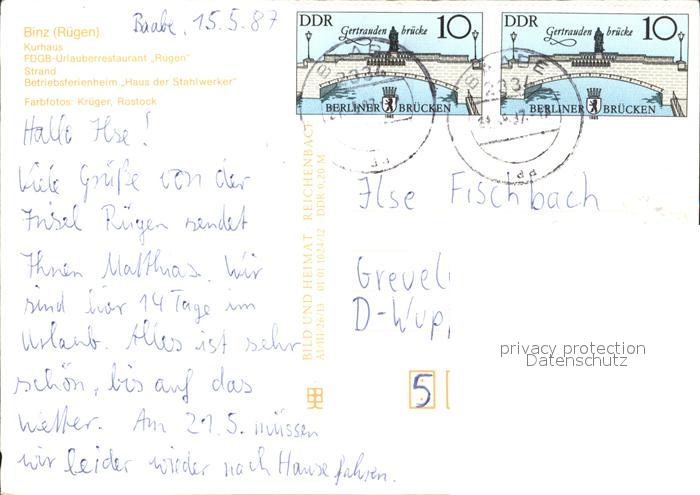 Binz (Rügen)
Kurhaus
FDGB-Urlauberrestaurant „Rügen“
Strand
Betriebsferienheim „Haus der Stahlwerker“
Farbfotos: Krüger, Rostock
Baabe, 15.5.87
Hallo Ilse!
Viele Grüße von der
Insel Rügen sendet
Ihnen Matthias. Wir
sind hier 14 Tage im
Urlaub. Alles ist sehr
schön, bis auf das
Wetter. Am 21.5. müssen
wir leider wieder nach Hause fahren.
BILD UND HEIMAT REICHENBACH
A1/III/26/13 01 01 1024/12 DDR 0,20 M
DDR Gertraudenbrücke 10
BERLINER BRÜCKEN
1985
DDR Gertraudenbrücke 10
BERLINER BRÜCKEN
1985
Ilse Fischbach
Grevel
D-Wupp
5
privacy protection
Datenschutz